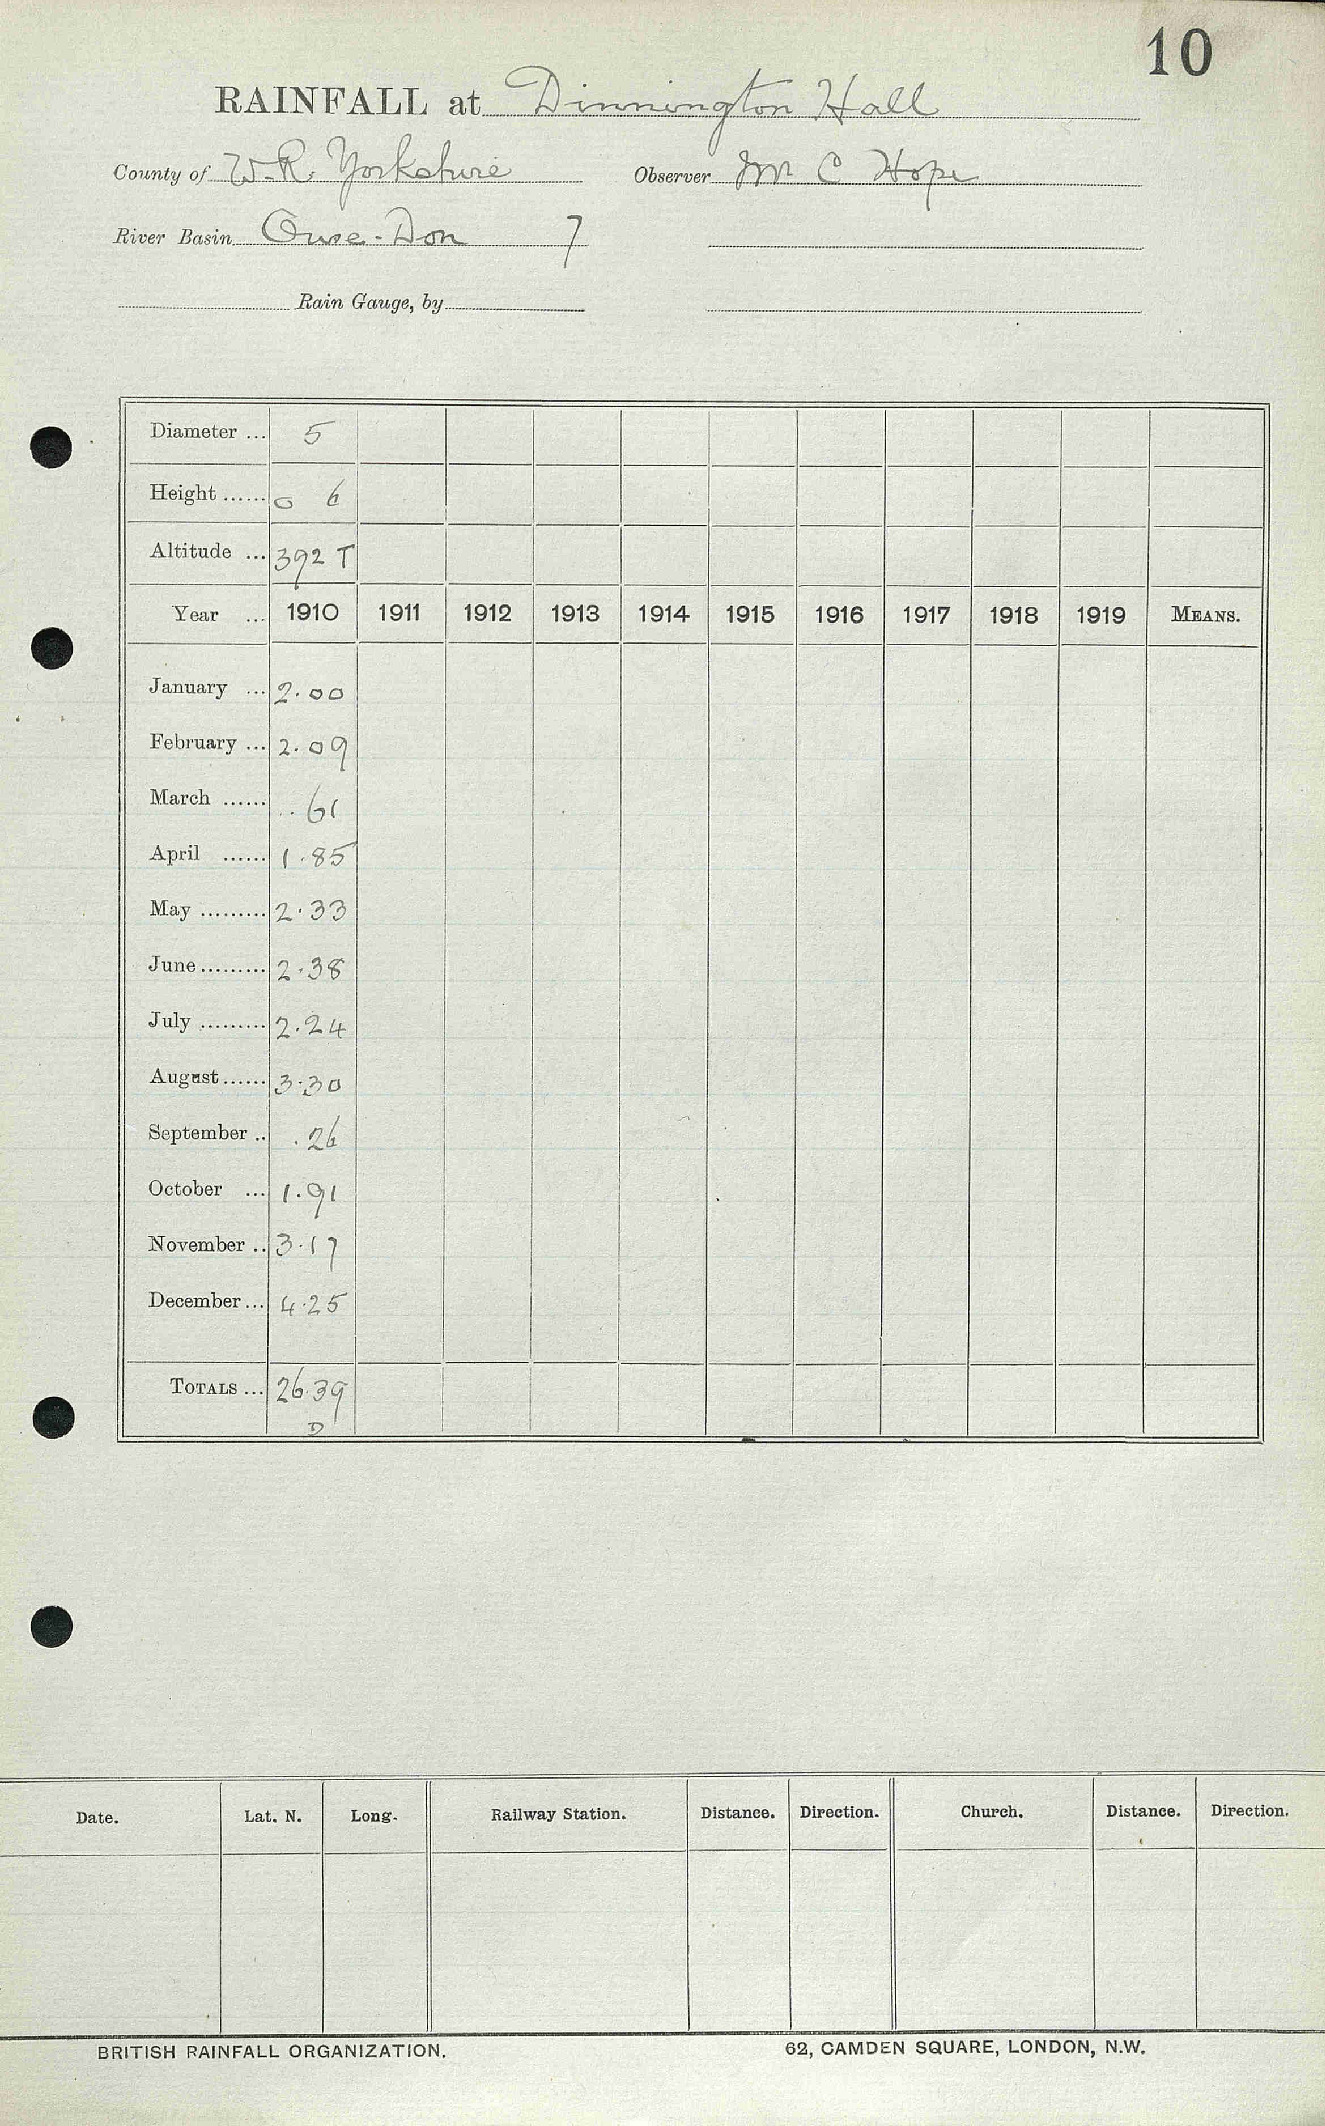 10
RAINFALL at Dinnington Hall
County of W.R. Yorkshire Observer Mr C Hope
River Basin Ouse-Don 7
Rain Gauge, by
Diameter ... 5
Height ...... 0 6
Altitude ... 392 T
Year ... 1910 1911 1912 1913 1914 1915 1916 1917 1918 1919 MEANS.
January ... 2.00
February ... 2.09
March ...... .61
April ...... 1.85
May ......... 2.33
June ......... 2.38
July ......... 2.24
August ...... 3.30
September .. .26
October ... 1.91
November .. 3.17
December ... 4.25
TOTALS ... 26.39
D
Date. Lat. N. Long. Railway Station. Distance. Direction. Church. Distance. Direction.
BRITISH RAINFALL ORGANIZATION. 62, CAMDEN SQUARE, LONDON, N.W.